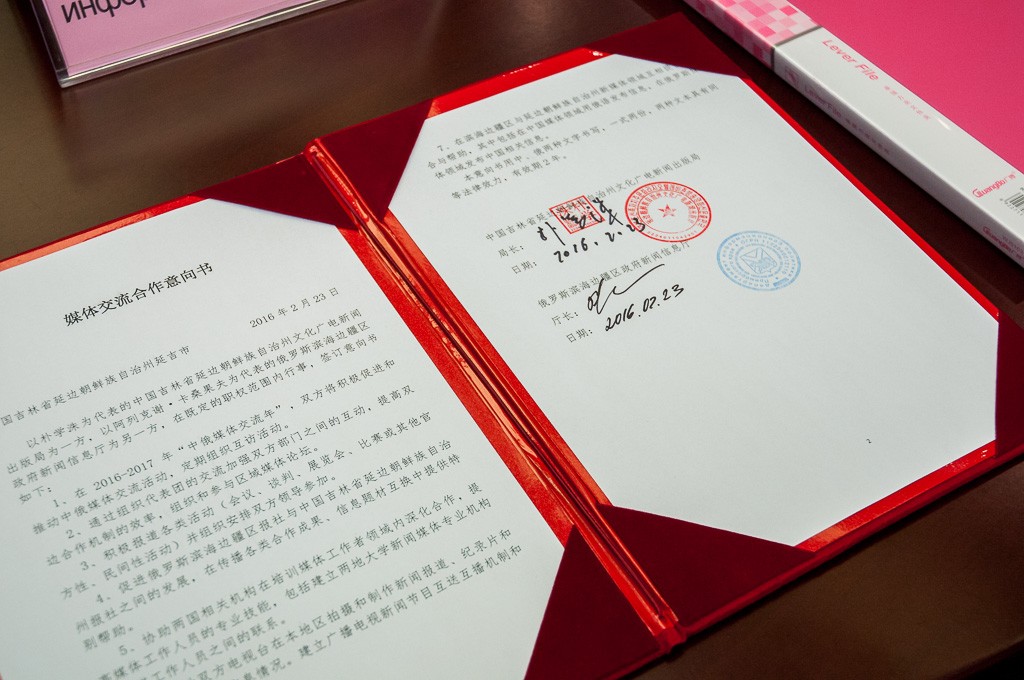 инфор
Lever File
GuangBo
媒体交流合作意向书
2016 年 2 月 23 日
国吉林省延边朝鲜族自治州延吉市
以朴学洙为代表的中国吉林省延边朝鲜族自治州文化广电新闻
出版局为一方，以阿列克谢·卡桑果夫为代表的俄罗斯滨海边疆区
政府新闻信息厅为另一方，在既定的职权范围内行事，签订意向书
如下：
1、在 2016-2017 年“中俄媒体交流年”，双方将积极促进和
推动中俄媒体交流活动，定期组织互访活动。
2、通过组织代表团的交流加强双方部门之间的互动，提高双
边合作机制的效率，组织和参与区域媒体论坛。
3、积极报道各类活动（会议、谈判、展览会、比赛或其他官
方性、民间性活动）并组织安排双方领导参加。
4、促进俄罗斯滨海边疆区报社与中国吉林省延边朝鲜族自治
州报社之间的发展，在传播各类合作成果、信息题材互换中提供特
别帮助。
5、协助两国相关机构在培训媒体工作者领域内深化合作，提
高媒体工作人员的专业技能，包括建立两地大学新闻媒体专业机构
工作人员之间的联系。
双方电视台在本地区拍摄和制作新闻报道、纪录片和
息情况。建立广播电视新闻节目互送互播机制和
7、在滨海边疆区与延边朝鲜族自治州新媒体领域互相
合与帮助，其中包括在中国媒体领域用俄语发布信息，在俄罗斯
体领域发布中国相关信息。
本意向书用中、俄两种文字书写，一式两份，两种文本具有同
等法律效力，有效期 2 年。
中国吉林省延边朝鲜族自治州文化广电新闻出版局
局长：
日期：2016.2.23
俄罗斯滨海边疆区政府新闻信息厅
厅长：
日期：2016.02.23
2